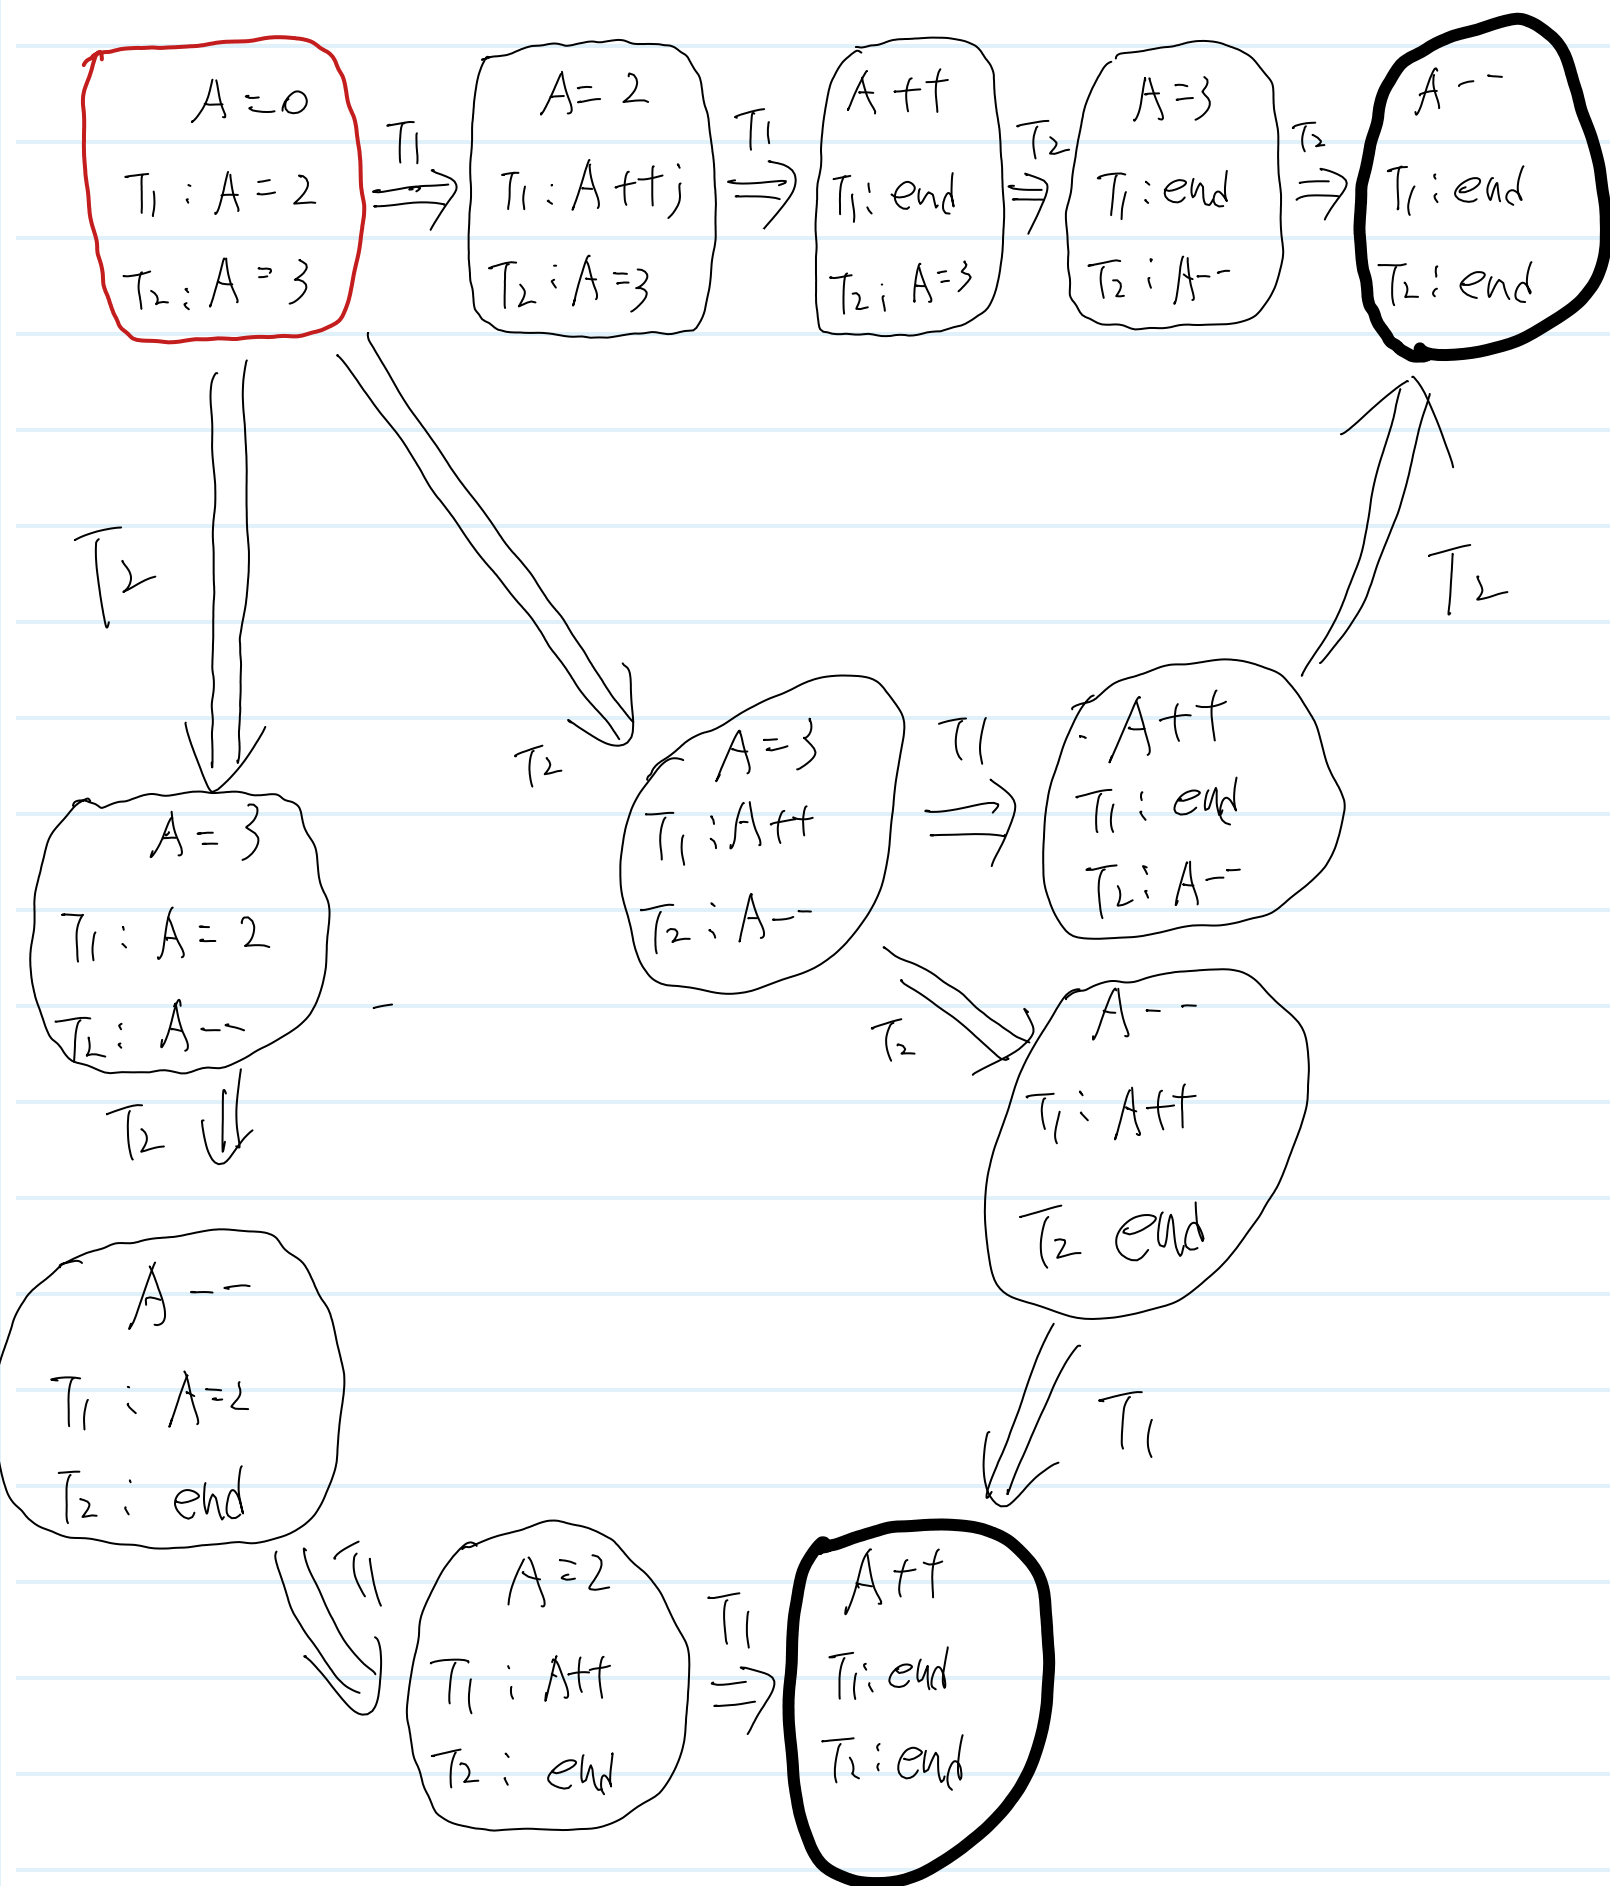 A=0
T1 : A=2
T2 : A=3
T1
A=2
T1 : A++;
T2 : A=3
T1
A++
T1: end
T2 ; A=3
T2
A=3
T1: end
T2 : A--
T2
A--
T1: end
T2: end
T2
T2
T2
A=3
T1 : A++
T2 : A--
T1
A++
T1: end
T2: A--
A=3
T1 : A=2
T2: A--
T2
T2
A--
T1: A++
T2 end
T1
A--
T1 : A=2
T2 : end
T1
A=2
T1 : A++
T2 : end
T1
A++
T1: end
T2: end